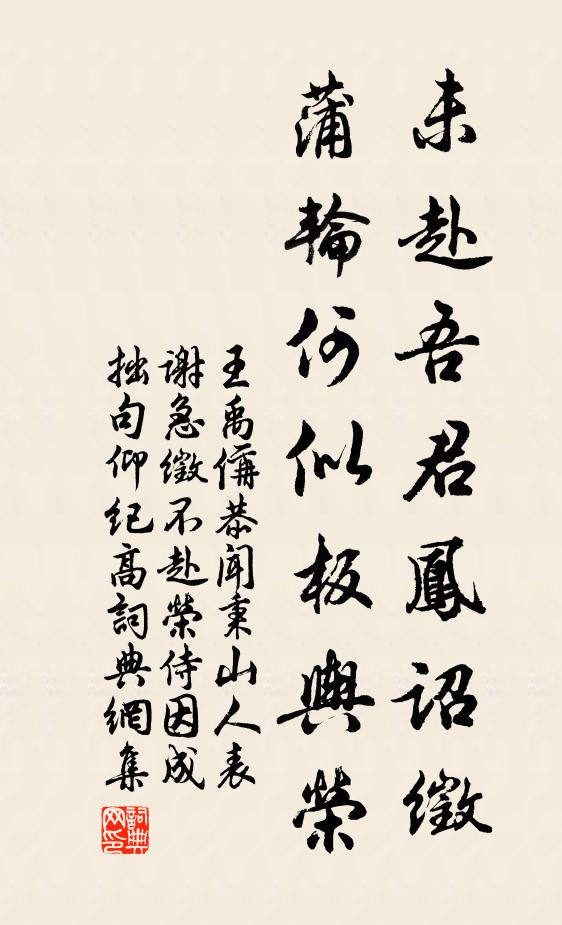 未赴吾君鳳詔徵
蒲輪何似板輿榮
王禹偁恭聞秉山人表
謝急徵不赴榮侍因成
拙句仰紀高詞典網集
詞典網印